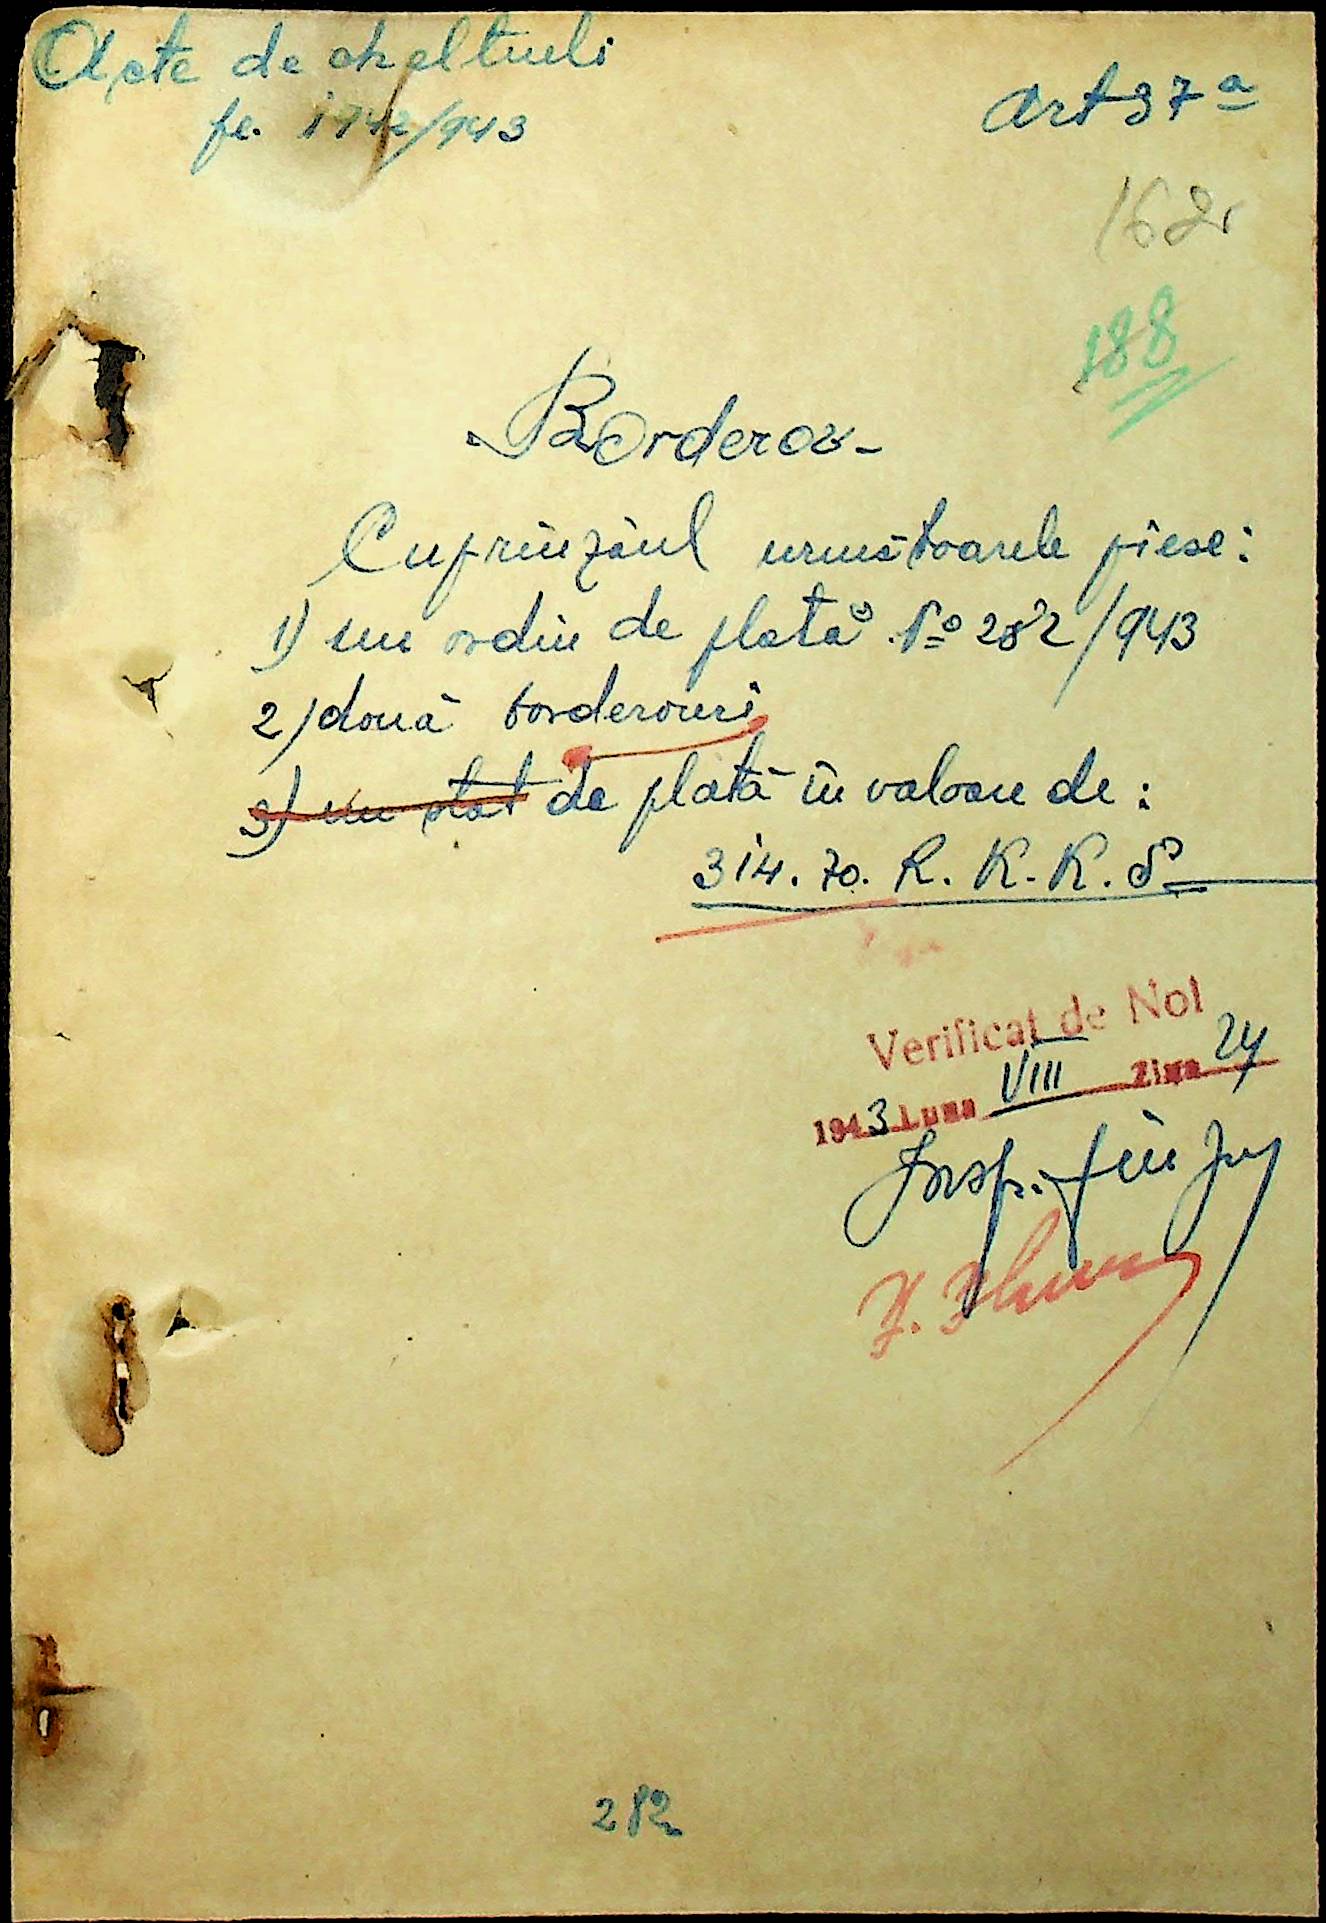 Acte de cheltueli
pe. 1942/943
Art 37 a
162
188
Borderou-
Cuprinzând următoarele piese:
1) un ordin de plată No 282/943
2) două borderouri
3) un stat de plată în valoare de:
314.70. R. K. K. S
Verificat de Noi
1943 Luna VIII Ziua 24
Insp. fin
282